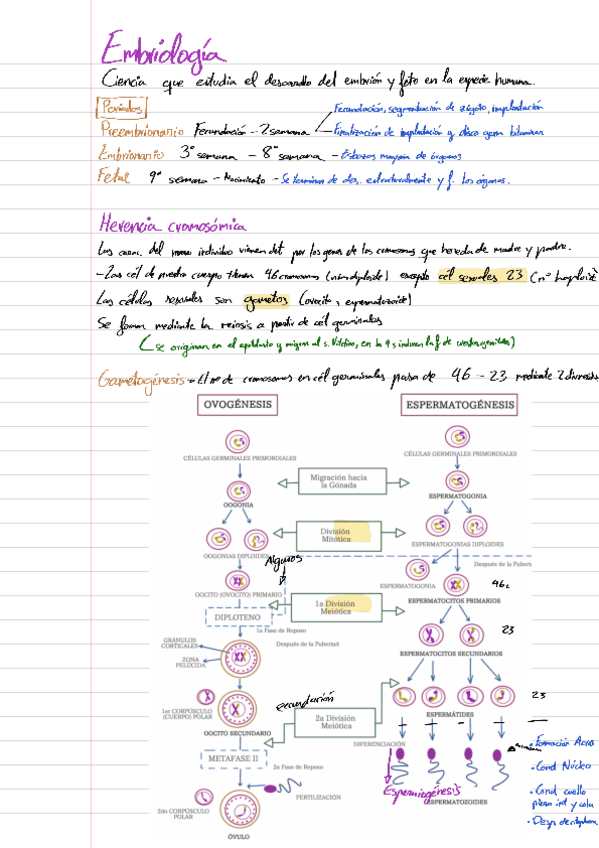 Embriología
Ciencia que estudia el desarrollo del embrión y feto en la especie humana.
Periodos
Fecundación, segmentación de zigoto, implantación
Preembrionario Fecundación - 2 semana
Finalización de implantación y disco germ bilaminar
Embrionario 3ª semana - 8ª semana - Esbozos mayoría de órganos
Fetal 9ª semana - Nacimiento - Se terminan de des. estructuralmente y f. los órganos.
Herencia cromosómica
Las carac. del nuevo individuo vienen det por los genes de los cromosomas que hereda de madre y padre.
- Las cél de nuestro cuerpo tienen 46 cromosomas (núm diploide) excepto cél sexuales 23 (nº haploide
Las células sexuales son gametos (ovocito y espermatozoide)
Se forman mediante la meiosis a partir de cél germinales
se originan en el epiblasto y migran al s. Vitelino, en la
Gametogénesis - El nº de cromosomas en cél germinales pasa de 46 - 23 mediante 2 divisiones
OVOGÉNESIS
ESPERMATOGÉNESIS
CÉLULAS GERMINALES PRIMORDIALES
CÉLULAS GERMINALES PRIMORDIALES
Migración hacia
la Gónada
OOGONIA
ESPERMATOGONIA
División
Mitótica
OOGONIAS DIPLOIDES
ESPERMATOGONIAS DIPLOIDES
Algunos
Después de la Pubertad
ESPERMATOGONIA
46c
OOCITO (OVOCITO) PRIMARIO
ESPERMATOCITOS PRIMARIOS
1a División
Meiótica
DIPLOTENO
1a Fase de Reposo
23
GRÁNULOS
CORTICALES
Después de la Pubertad
ESPERMATOCITOS SECUNDARIOS
ZONA
PELÚCIDA
fecundación
23
1er CORPÚSCULO
(CUERPO) POLAR
2a División
Meiótica
ESPERMÁTIDES
OOCITO SECUNDARIO
DIFERENCIACIÓN
• Formación Acros
METAFASE II
2a Fase de Reposo
• Cond Núcleo
Espermiogénesis
FERTILIZACIÓN
ESPERMATOZOIDES
• Cond cuello
pieza int y cola
2do CORPÚSCULO
POLAR
ÓVULO